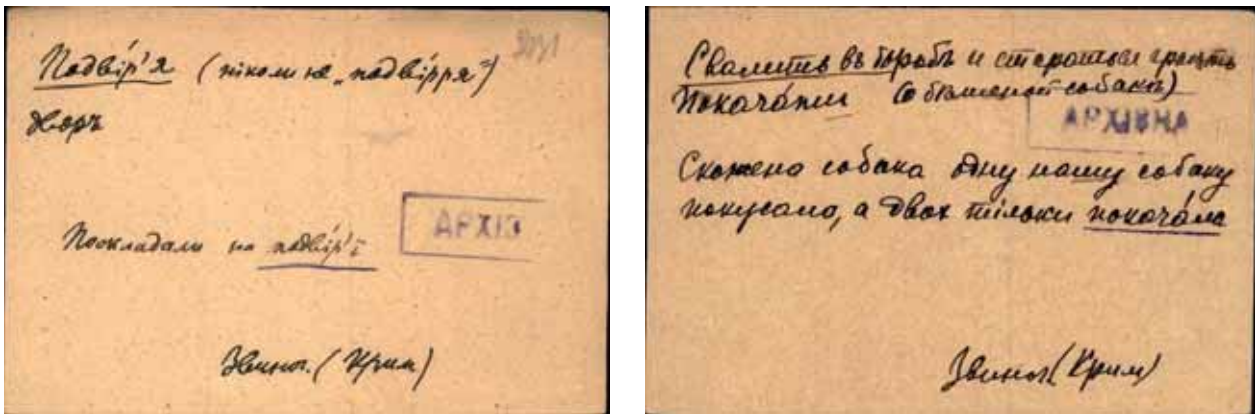 Подвíр'я (ніколи не „подвíрря")
Дворъ
АРХІВ
Поскладали на подвíр'ї
Звиног. (Крим)
Свалить въ борьбѣ и стараться грызть
Покачáти (о бѣшеной собакѣ)
АРХІВНА
Скажена собака одну нашу собаку
покусала, а двох тільки покачáла
Звиног (Крим)